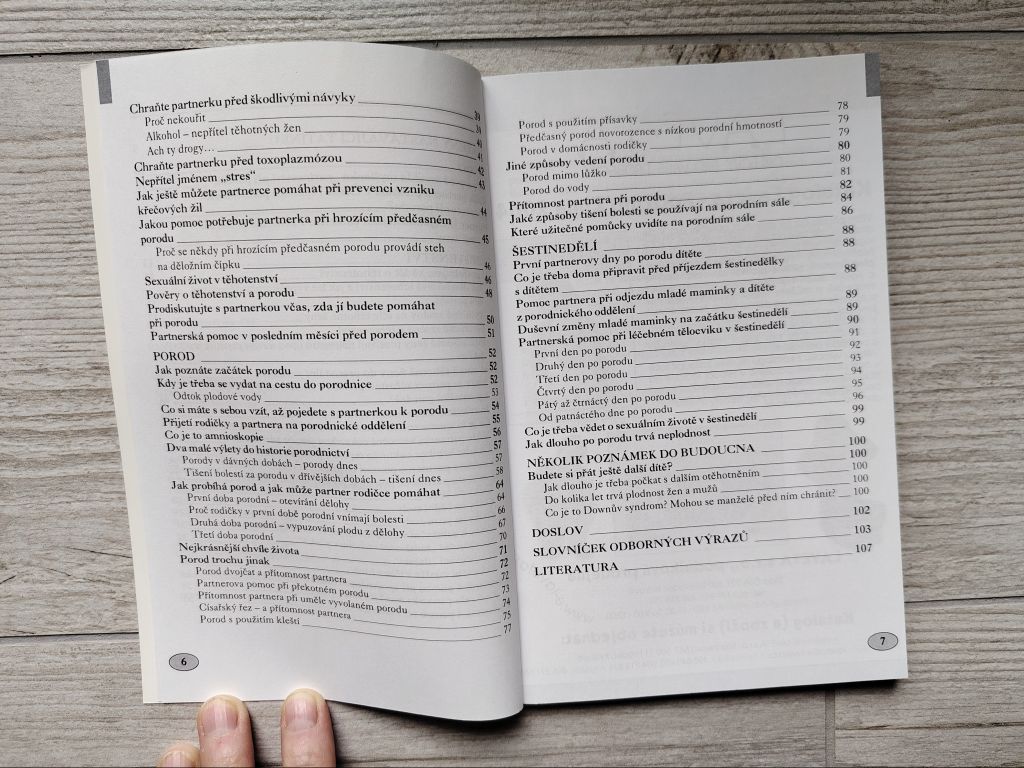 Chraňte partnerku před škodlivými návyky 39
Proč nekouřit 39
Alkohol – nepřítel těhotných žen 40
Ach ty drogy… 41
Chraňte partnerku před toxoplazmózou 42
Nepřítel jménem „stres“ 43
Jak ještě můžete partnerce pomáhat při prevenci vzniku
křečových žil 44
Jakou pomoc potřebuje partnerka při hrozícím předčasném
porodu 45
Proč se někdy při hrozícím předčasném porodu provádí steh
na děložním čípku 46
Sexuální život v těhotenství 46
Pověry o těhotenství a porodu 48
Prodiskutujte s partnerkou včas, zda jí budete pomáhat
při porodu 50
Partnerská pomoc v posledním měsíci před porodem 51
POROD 52
Jak poznáte začátek porodu 52
Kdy je třeba se vydat na cestu do porodnice 52
Odtok plodové vody 53
Co si máte s sebou vzít, až pojedete s partnerkou k porodu 54
Přijetí rodičky a partnera na porodnické oddělení 55
Co je to amnioskopie 56
Dva malé výlety do historie porodnictví 57
Porody v dávných dobách – porody dnes 57
Tišení bolestí za porodu v dřívějších dobách – tišení dnes 58
Jak probíhá porod a jak může partner rodičce pomáhat 64
První doba porodní – otevírání dělohy 64
Proč rodičky v první době porodní vnímají bolesti 66
Druhá doba porodní – vypuzování plodu z dělohy 67
Třetí doba porodní 70
Nejkrásnější chvíle života 71
Porod trochu jinak 72
Porod dvojčat a přítomnost partnera 72
Partnerova pomoc při překotném porodu 73
Přítomnost partnera při uměle vyvolaném porodu 74
Císařský řez – a přítomnost partnera 75
Porod s použitím kleští 77
6
Porod s použitím přísavky 78
Předčasný porod novorozence s nízkou porodní hmotností 79
Porod v domácnosti rodičky 79
Jiné způsoby vedení porodu 80
Porod mimo lůžko 80
Porod do vody 81
Přítomnost partnera při porodu 82
Jaké způsoby tišení bolesti se používají na porodním sále 84
Které užitečné pomůcky uvidíte na porodním sále 86
ŠESTINEDĚLÍ 88
První partnerovy dny po porodu dítěte 88
Co je třeba doma připravit před příjezdem šestinedělky
s dítětem 88
Pomoc partnera při odjezdu mladé maminky a dítěte
z porodnického oddělení 89
Duševní změny mladé maminky na začátku šestinedělí 89
Partnerská pomoc při léčebném tělocviku v šestinedělí 90
První den po porodu 91
Druhý den po porodu 92
Třetí den po porodu 93
Čtvrtý den po porodu 94
Pátý až čtrnáctý den po porodu 95
Od patnáctého dne po porodu 96
Co je třeba vědět o sexuálním životě v šestinedělí 99
Jak dlouho po porodu trvá neplodnost 99
NĚKOLIK POZNÁMEK DO BUDOUCNA 100
Budete si přát ještě další dítě? 100
Jak dlouho je třeba počkat s dalším otěhotněním 100
Do kolika let trvá plodnost žen a mužů 100
Co je to Downův syndrom? Mohou se manželé před ním chránit? 100
DOSLOV 102
SLOVNÍČEK ODBORNÝCH VÝRAZŮ 103
LITERATURA 107
7